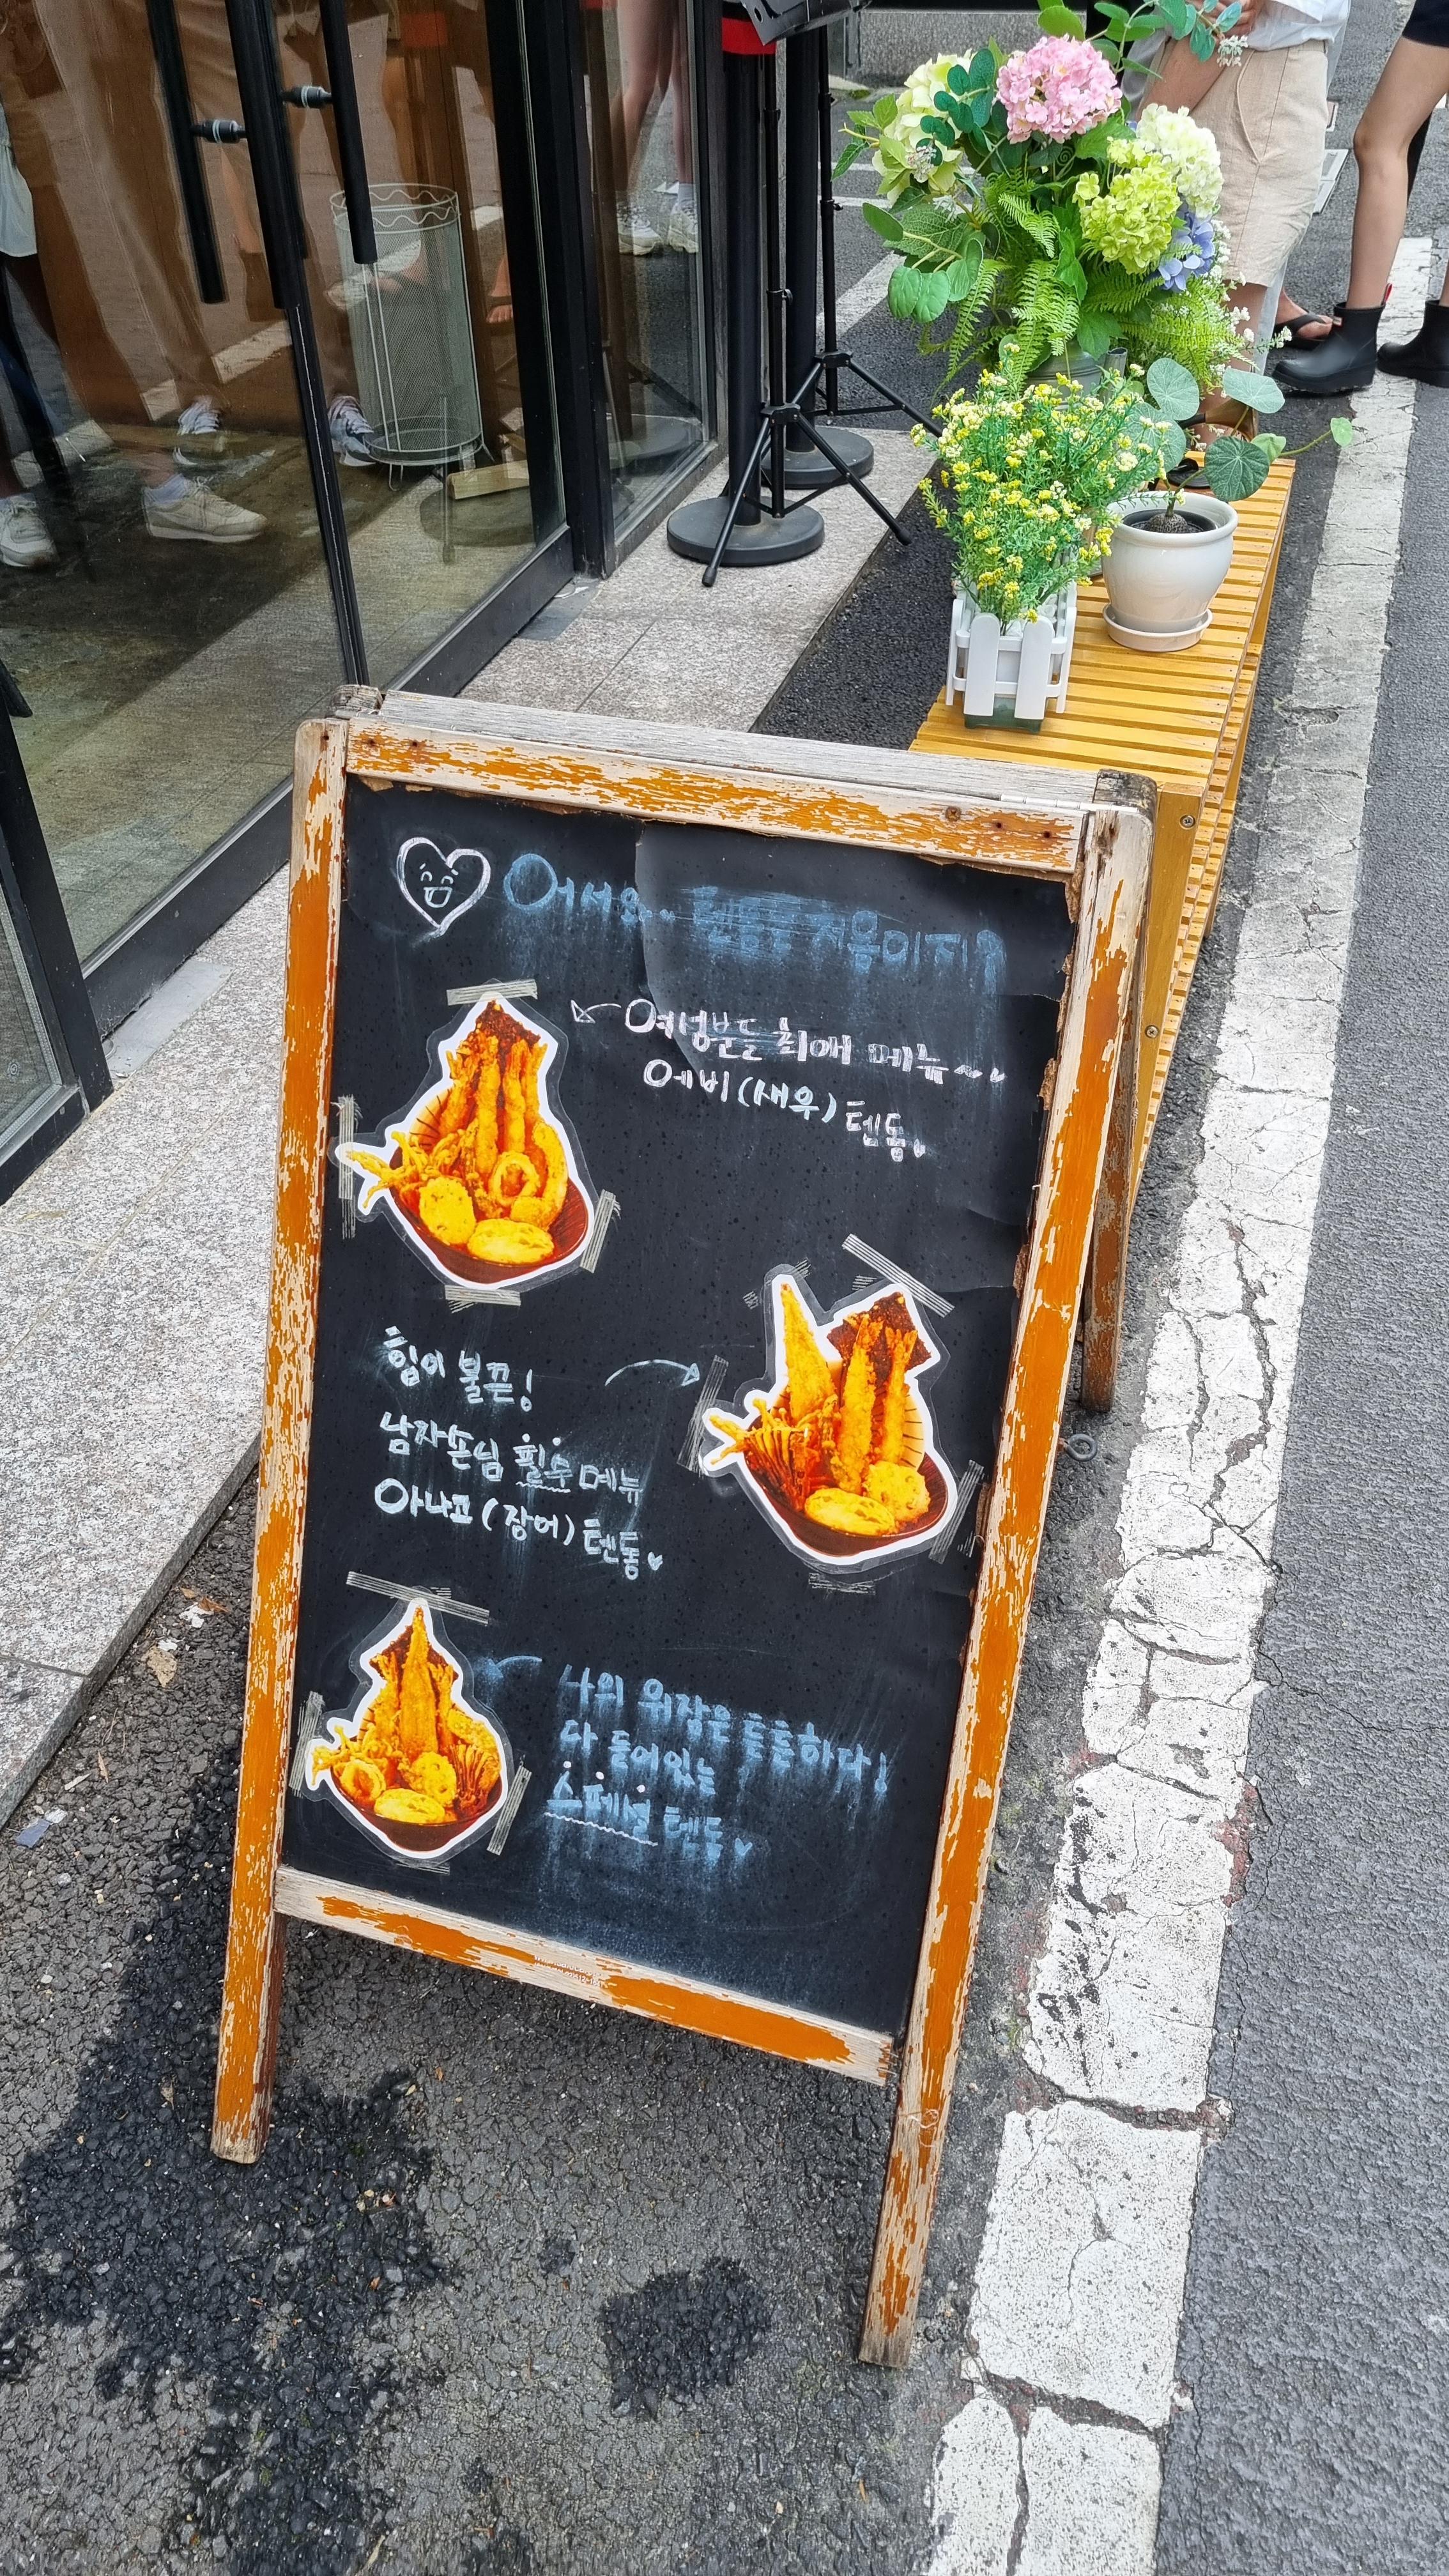 어서와~ 텐동은 처음이지?
여성분들 최애 메뉴~♥
에비(새우) 텐동♥
힘이 불끈!
남자손님 필수 메뉴
아나고(장어) 텐동♥
나의 위장은 튼튼하다!
다 들어있는
스페셜 텐동♥